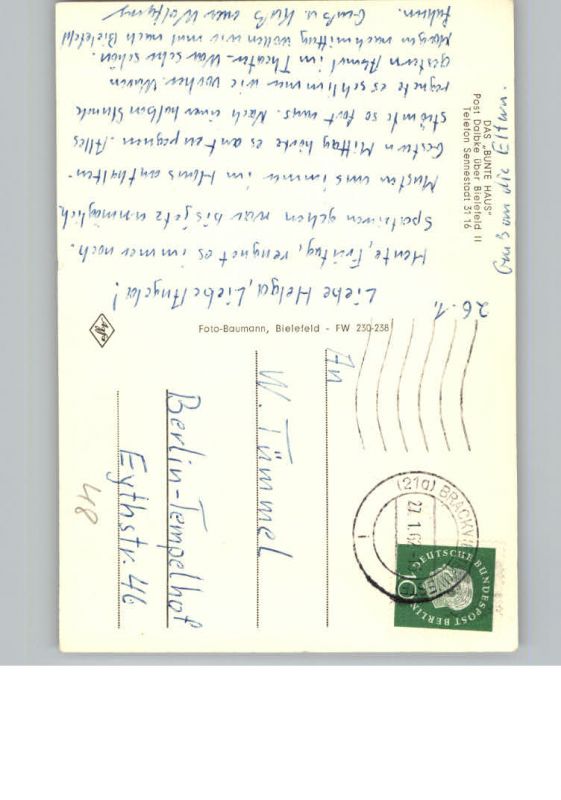 DAS „BUNTE HAUS"
Post Dalbke über Bielefeld II
Telefon Sennestadt 31 16
26.1.
Liebe Helga, Liebe Angela!
Heute, Freitag, rengnet es immer noch.
Spatzieren gehen war bis jetz unmöglich
Musten uns immer im Haus aufhalten.
Gestern Mittag hörte es auf zu regnen. Alles
stürmte so fort raus. Nach einer halben Stunde
regnete es schlimmer wie vorher. Waren
gestern Abend im Theater – War sehr schön.
Morgen nachmittag wollen wir mal nach Bielefeld
fahren. Gruß u. Kuß euer Wolfgang
Gruß an die Eltern.
Foto-Baumann, Bielefeld - FW 230-238
Agfa
An
W. Tümmel
Berlin-Tempelhof
Eythstr. 46
48
(21a) BRACKWEDE
27.1.62
DEUTSCHE BUNDESPOST BERLIN
10